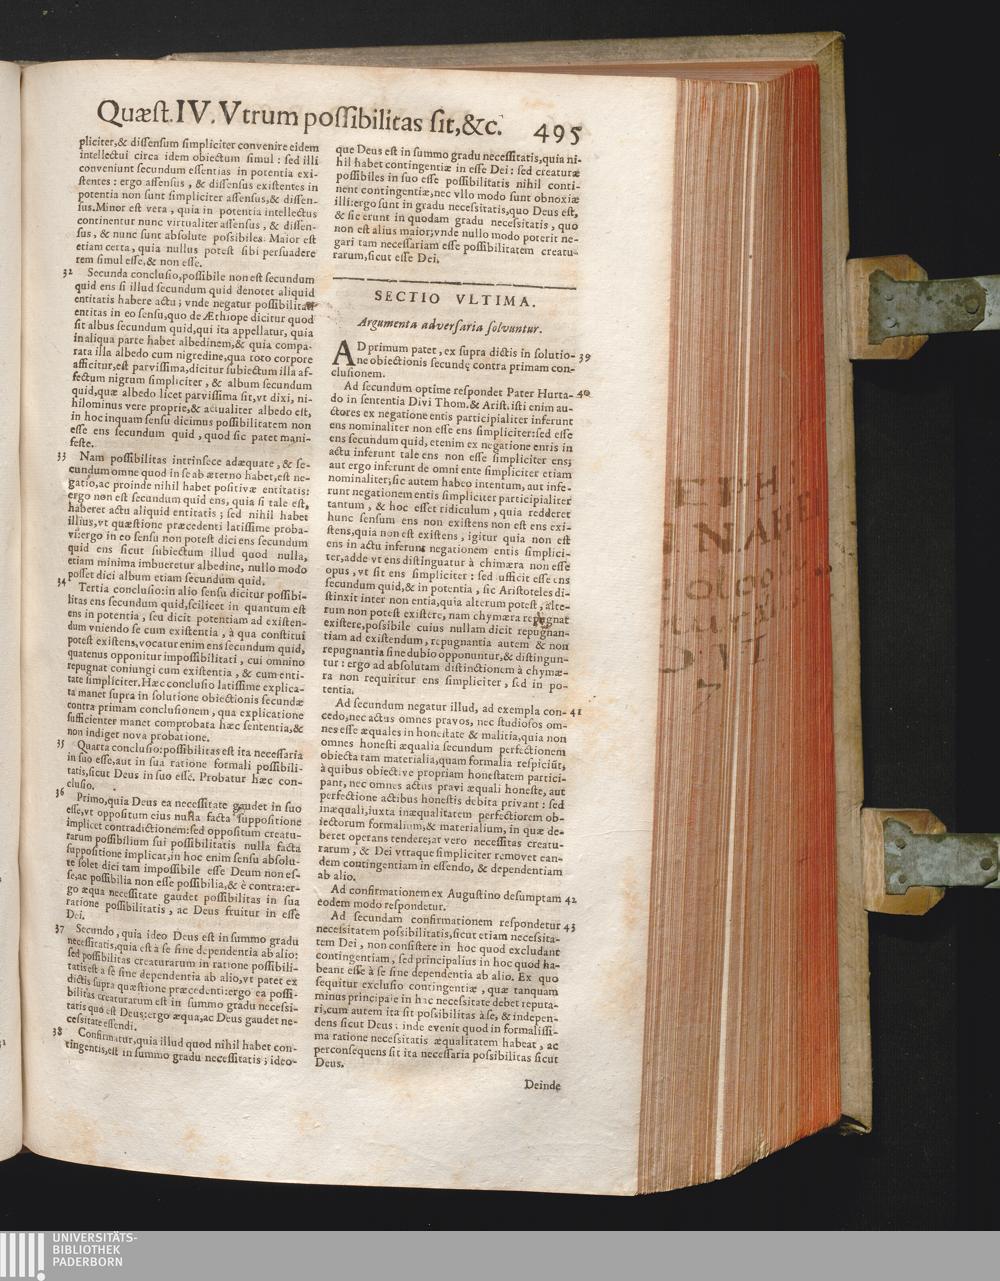 Quæst. IV. Vtrum possibilitas sit, &c. 495
pliciter, & dissensum simpliciter convenire eidem
intellectui circa idem obiectum simul : sed illi
conveniunt secundum essentias in potentia exi-
stentes : ergo assensus , & dissensus existentes in
potentia non sunt simpliciter assensus, & dissen-
sus. Minor est vera , quia in potentia intellectus
continentur nunc virtualiter assensus , & dissen-
sus , & nunc sunt absolute possibiles. Maior est
etiam certa, quia nullus potest sibi persuadere
rem simul esse, & non esse.
32 Secunda conclusio, possibile non est secundum
quid ens si illud secundum quid denotet aliquid
entitatis habere actu ; vnde negatur possibilitati
entitas in eo sensu, quo de Æthiope dicitur quod
sit albus secundum quid, qui ita appellatur, quia
in aliqua parte habet albedinem, & quia compa-
rata illa albedo cum nigredine, qua toto corpore
afficitur, est parvissima, dicitur subiectum illa af-
fectum nigrum simpliciter , & album secundum
quid, quæ albedo licet parvissima sit, vt dixi, ni-
hilominus vere proprie, & actualiter albedo est,
in hoc inquam sensu dicimus possibilitatem non
esse ens secundum quid , quod sic patet mani-
feste.
33 Nam possibilitas intrinsece adæquate , & se-
cundum omne quod in se ab æterno habet, est ne-
gatio, ac proinde nihil habet positivæ entitatis:
ergo non est secundum quid ens, quia si tale est,
haberet actu aliquid entitatis ; sed nihil habet
illius, vt quæstione præcedenti latissime proba-
vi: ergo in eo sensu non potest dici ens secundum
quid ens sicut subiectum illud quod nulla,
etiam minima imbueretur albedine, nullo modo
posset dici album etiam secundum quid.
34 Tertia conclusio: in alio sensu dicitur possibi-
litas ens secundum quid, scilicet in quantum est
ens in potentia , seu dicit potentiam ad existen-
dum vniendo se cum existentia , à qua constitui
potest existens, vocatur enim ens secundum quid,
quatenus opponitur impossibilitati , cui omnino
repugnat coniungi cum existentia , & cum enti-
tate simpliciter. Hæc conclusio latissime explica-
ta manet supra in solutione obiectionis secundæ
contra primam conclusionem , qua explicatione
sufficienter manet comprobata hæc sententia, &
non indiget nova probatione.
35 Quarta conclusio: possibilitas est ita necessaria
in suo esse, aut in sua ratione formali possibili-
tatis, sicut Deus in suo esse. Probatur hæc con-
clusio.
36 Primo, quia Deus ea necessitate gaudet in suo
esse, vt oppositum eius nulla facta suppositione
implicet contradictionem: sed oppositum creatu-
rarum possibilium sui possibilitatis nulla facta
suppositione implicat, in hoc enim sensu absolu-
te solet dici tam impossibile esse Deum non es-
se, ac possibilia non esse possibilia, & è contra: er-
go æqua necessitate gaudet possibilitas in sua
ratione possibilitatis , ac Deus fruitur in esse
Dei.
37 Secundo, quia ideo Deus est in summo gradu
necessitatis, quia est à se sine dependentia ab alio:
sed possibilitas creaturarum in ratione possibili-
tatis est a se sine dependentia ab alio, vt patet ex
dictis supra quæstione præcedenti: ergo ea possi-
bilitas creaturarum est in summo gradu necessi-
tatis quo est Deus: ergo æqua, ac Deus gaudet ne-
cessitate essendi.
38 Confirmatur, quia illud quod nihil habet con-
tingentis, est in summo gradu necessitatis ; ideo-
que Deus est in summo gradu necessitatis, quia ni-
hil habet contingentiæ in esse Dei : sed creaturæ
possibiles in suo esse possibilitatis nihil conti-
nent contingentiæ, nec vllo modo sunt obnoxiæ
illi: ergo sunt in gradu necessitatis, quo Deus est,
& sic erunt in quodam gradu necessitatis , quo
non est alius maior; vnde nullo modo poterit ne-
gari tam necessariam esse possibilitatem creatu-
rarum, sicut esse Dei.
SECTIO VLTIMA.
Argumenta adversaria solvuntur.
AD primum patet, ex supra dictis in solutio- 39
ne obiectionis secundę contra primam con-
clusionem.
Ad secundum optime respondet Pater Hurta- 40
do in sententia Divi Thom. & Arist. isti enim au-
ctores ex negatione entis participialiter inferunt
ens nominaliter non esse ens simpliciter: sed esse
ens secundum quid, etenim ex negatione entis in
actu inferunt tale ens non esse simpliciter ens;
aut ergo inferunt de omni ente simpliciter etiam
nominaliter; sic autem habeo intentum, aut infe-
runt negationem entis simpliciter participialiter
tantum , & hoc esset ridiculum , quia redderet
hunc sensum ens non existens non est ens exi-
stens, quia non est existens , igitur quia non est
ens in actu inferunt negationem entis simplici-
ter, adde vt ens distinguatur à chimæra non esse
opus , vt sit ens simpliciter : sed sufficit esse ens
secundum quid, & in potentia , sic Aristoteles di-
stinxit inter non entia, quia alterum potest , alte-
rum non potest existere, nam chymæra repugnat
existere, possibile cuius nullam dicit repugnan-
tiam ad existendum, repugnantia autem & non
repugnantia sine dubio opponuntur, & distingun-
tur : ergo ad absolutam distinctionem à chymæ-
ra non requiritur ens simpliciter , sed in po-
tentia.
Ad secundum negatur illud, ad exempla con- 41
cedo, nec actus omnes pravos, nec studiosos om-
nes esse æquales in honestate & malitia, quia non
omnes honesti æqualia secundum perfectionem
obiecta tam materialia, quam formalia respiciũt,
à quibus obiective propriam honestatem partici-
pant, nec omnes actus pravi æquali honeste, aut
perfectione actibus honestis debita privant : sed
inæquali, iuxta inæqualitatem perfectiorem ob-
iectorum formalium, & materialium, in quæ de-
beret operans tendere; at vero necessitas creatu-
rarum , & Dei vtraque simpliciter removet ean-
dem contingentiam in essendo, & dependentiam
ab alio.
Ad confirmationem ex Augustino desumptam 42
eodem modo respondetur.
Ad secundam confirmationem respondetur 43
necessitatem possibilitatis, sicut etiam necessita-
tem Dei , non consistere in hoc quod excludant
contingentiam , sed principalius in hoc quod ha-
beant esse à se sine dependentia ab alio. Ex quo
sequitur exclusio contingentiæ , quæ tanquam
minus principale in hac necessitate debet reputa-
ri, cum autem ita sit possibilitas à se, & indepen-
dens sicut Deus : inde evenit quod in formalissi-
ma ratione necessitatis æqualitatem habeat , ac
per consequens sit ita necessaria possibilitas sicut
Deus.
Deinde
UNIVERSITÄTS-
BIBLIOTHEK
PADERBORN